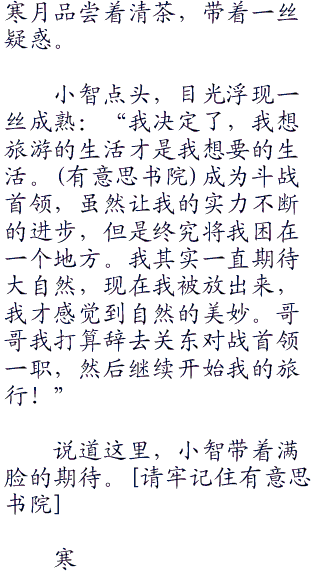 寒月品尝着清茶，带着一丝
疑惑。
小智点头，目光浮现一
丝成熟：“我决定了，我想
旅游的生活才是我想要的生
活。(有意思书院)成为斗战
首领，虽然让我的实力不断
的进步，但是终究将我困在
一个地方。我其实一直期待
大自然，现在我被放出来，
我才感觉到自然的美妙。哥
哥我打算辞去关东对战首领
一职，然后继续开始我的旅
行！”
说道这里，小智带着满
脸的期待。[请牢记住有意思
书院]
寒